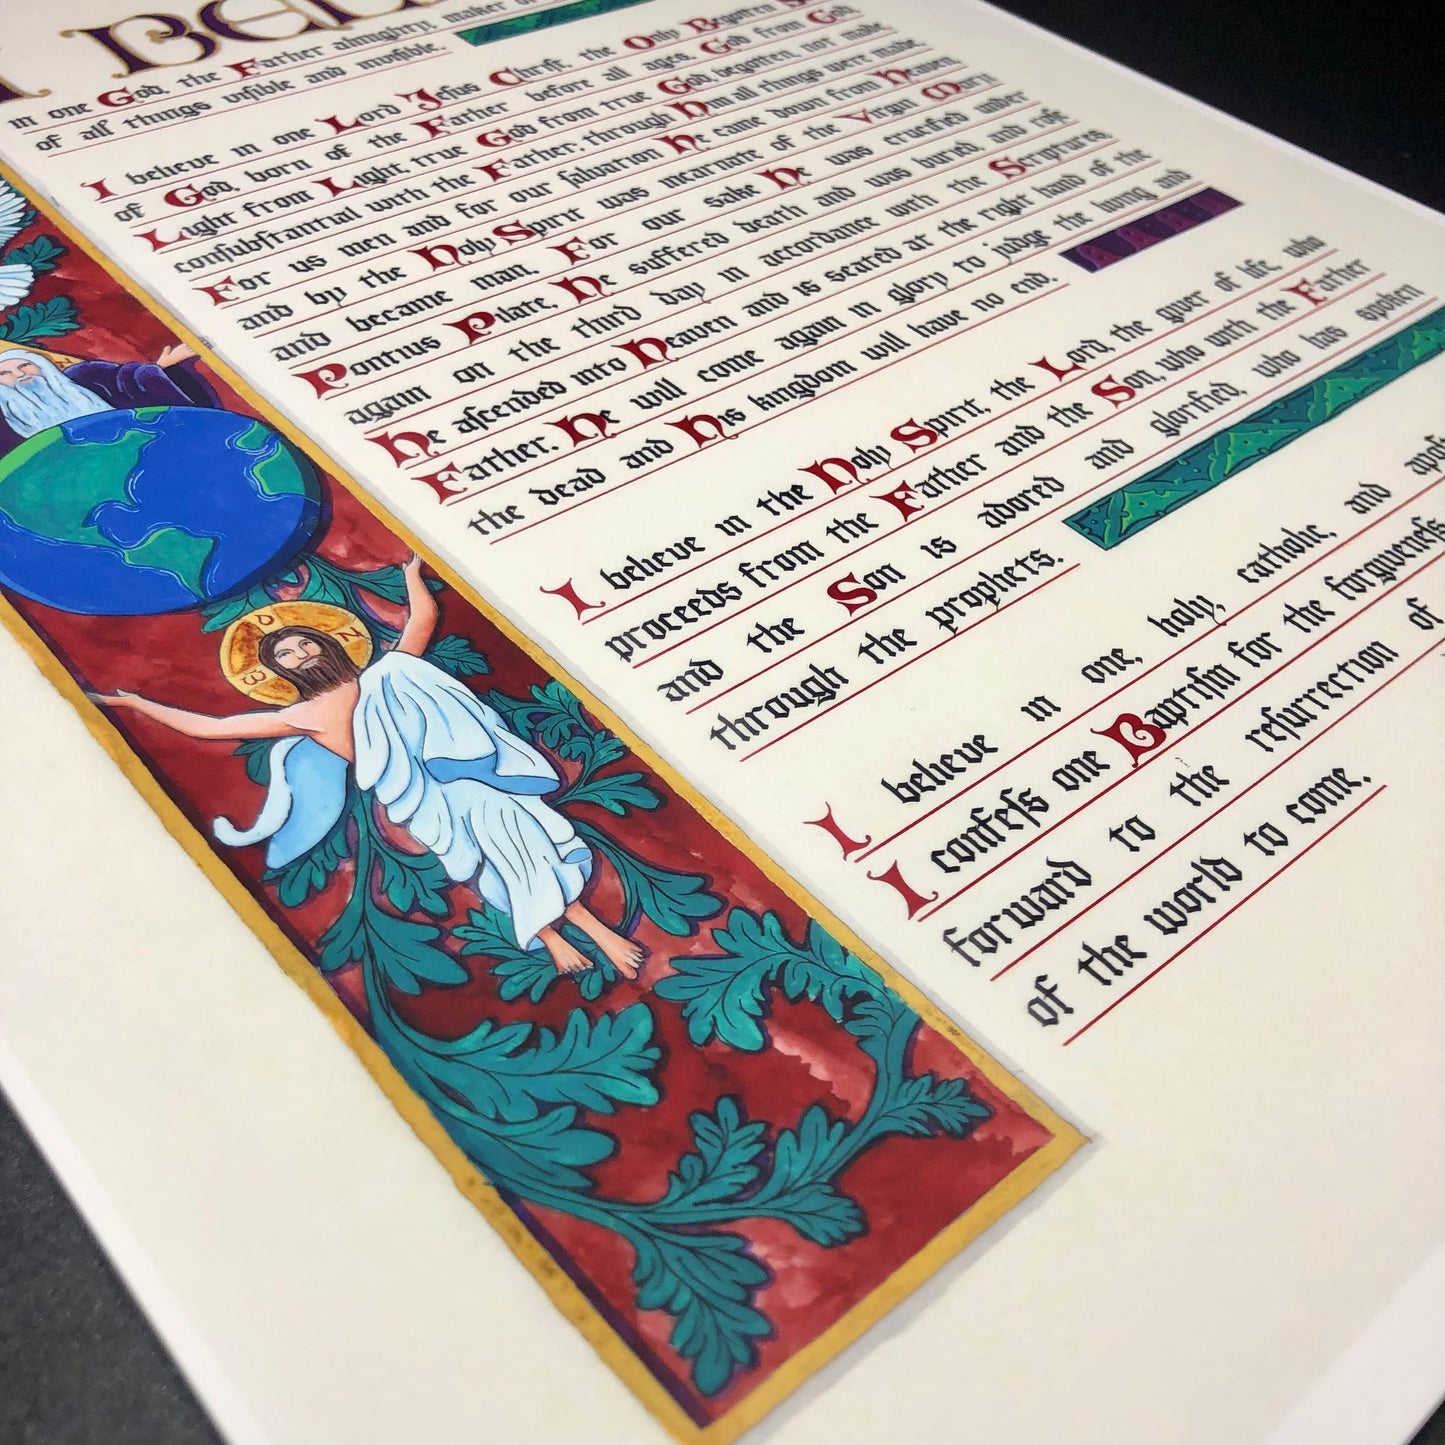 I BEL
in one God, the Father almighty, maker of
of all things visible and invisible.
I believe in one Lord Jesus Christ, the Only Begotten S
of God, born of the Father before all ages. God from God,
Light from Light, true God from true God, begotten, not made,
consubstantial with the Father; through him all things were made.
For us men and for our salvation he came down from heaven,
and by the Holy Spirit was incarnate of the Virgin Mary
and became man. For our sake he was crucified under
Pontius Pilate, he suffered death and was buried, and rose
again on the third day in accordance with the Scriptures.
he ascended into heaven and is seated at the right hand of the
Father. He will come again in glory to judge the living and
the dead and his kingdom will have no end.
I believe in the Holy Spirit, the Lord, the giver of life, who
proceeds from the Father and the Son, who with the Father
and the Son is adored and glorified, who has spoken
through the prophets.
I believe in one, holy, catholic, and apos
I confess one Baptism for the forgiveness
forward to the resurrection of
of the world to come.